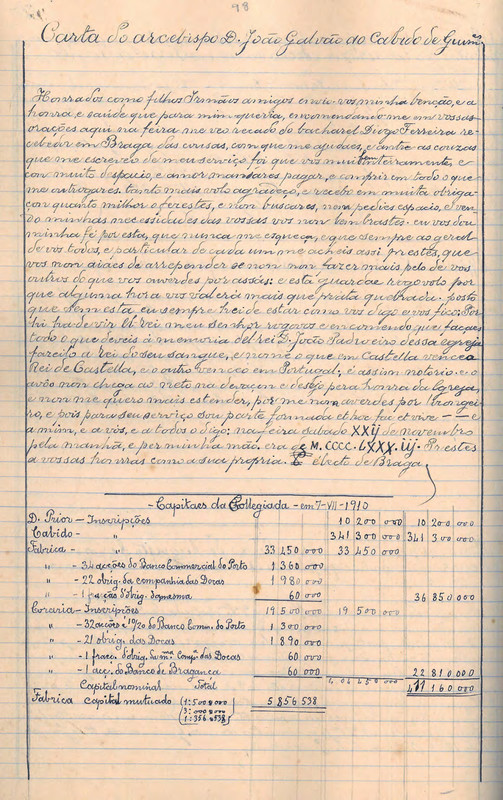 98
Carta do arcebispo D. João Galvão ao Cabido de Guim.es
Honrados como filhos Irmãos amigos envio vos minha benção, e a
honra, e saúde que para mim queria, encomendando me em vossas
orações aqui na feira me veo recado do bacharel Diogo Ferreira re-
cebedor em Braga das cousas, com que me ajudaes, e antre as couzas
que me escreveo de meu serviço foi que vós mui bem inteiramente, e
com muito despacio, e amor mandareis pagar, e comprir em todo o que
me outrogares. tanto mais volo agradeço, e recebo em muita obriga-
çon quanto milhor oferestes, e non buscares, nom pedires espacio, e ven-
do minhas necessidades das vossas vos non lembrastes. eu vos dou
minha fé por esta, que nunca me esqueça, e que sempre ao geral
de vós todos, e particular de cada um me acheis assi prestes, que
vos non aiáes de arrepender se non non fazer mais pelo de vós
outros do que vos ouverdes por assás: e esta guardae rogovolo por
que alguma hora vos valerá mais que prata quebrada. posto
que sem esta eu sempre hei de estar como vos digo e vos fico. Por
hi ha de vir el rei meu senhor rogovos e encomendo que façaes
todo o que deveis à memoria del rei D. João Padroeiro dessa egreja
fazei o a rei do seu sangue, e nome o que em Castella venceo
Rei de Castella, e o outro venceo em Portugal, e assim notorio. e o
avôo non chega ao neto na devaçom e desejo pera honra da Egreja,
e non me quero mais estender, por me non averdes por
e pois para seu serviço sou parte formada et hoc fui et vivo — e
a mim, e a vós, e a todos o digo; na feira sabado XXij de novembro
pela manhã, e per minha mão. era de M. CCCC. LXXX. iij. Prestes
a vossas honrras como a sua propria. electo de Braga
- Capitaes da Collegiada - em 7-VII-1910
D. Prior - Inscripções 10 200 000 10 200 000
Cabido - " 341 300 000 341 300 000
Fabrica - " 33 450 000 33 450 000
" - 34 acções do Banco Commercial do Porto 1 360 000
" - 22 obrig. da companhia das Docas 1 980 000
" - 1 fracção d'obrig. da mesma 60 000 36 850 000
Coraria - Inscripções 19 500 000 19 500 000
" - 32 acções e 10/20 do Banco Comm. do Porto 1 300 000
" - 21 obrig. das Docas 1 890 000
" - 1 fracç. d'obrig. da m.ma Comp.a das Docas 60 000
" - 1 acç. do Banco de Bragança 60 000 22 810 000
Capital nominal Total 404 450 000 411 160 000
Fabrica capital mutuado (1:500 000 5 856 538
(3:000 000
(1:356 538)